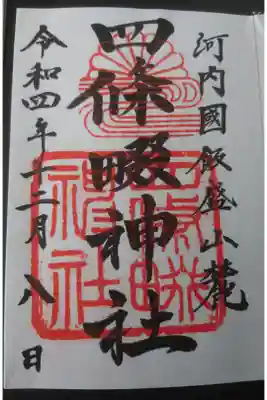 河内國飯盛山麓
四條畷神社
令和四年十二月八日
四條畷神社